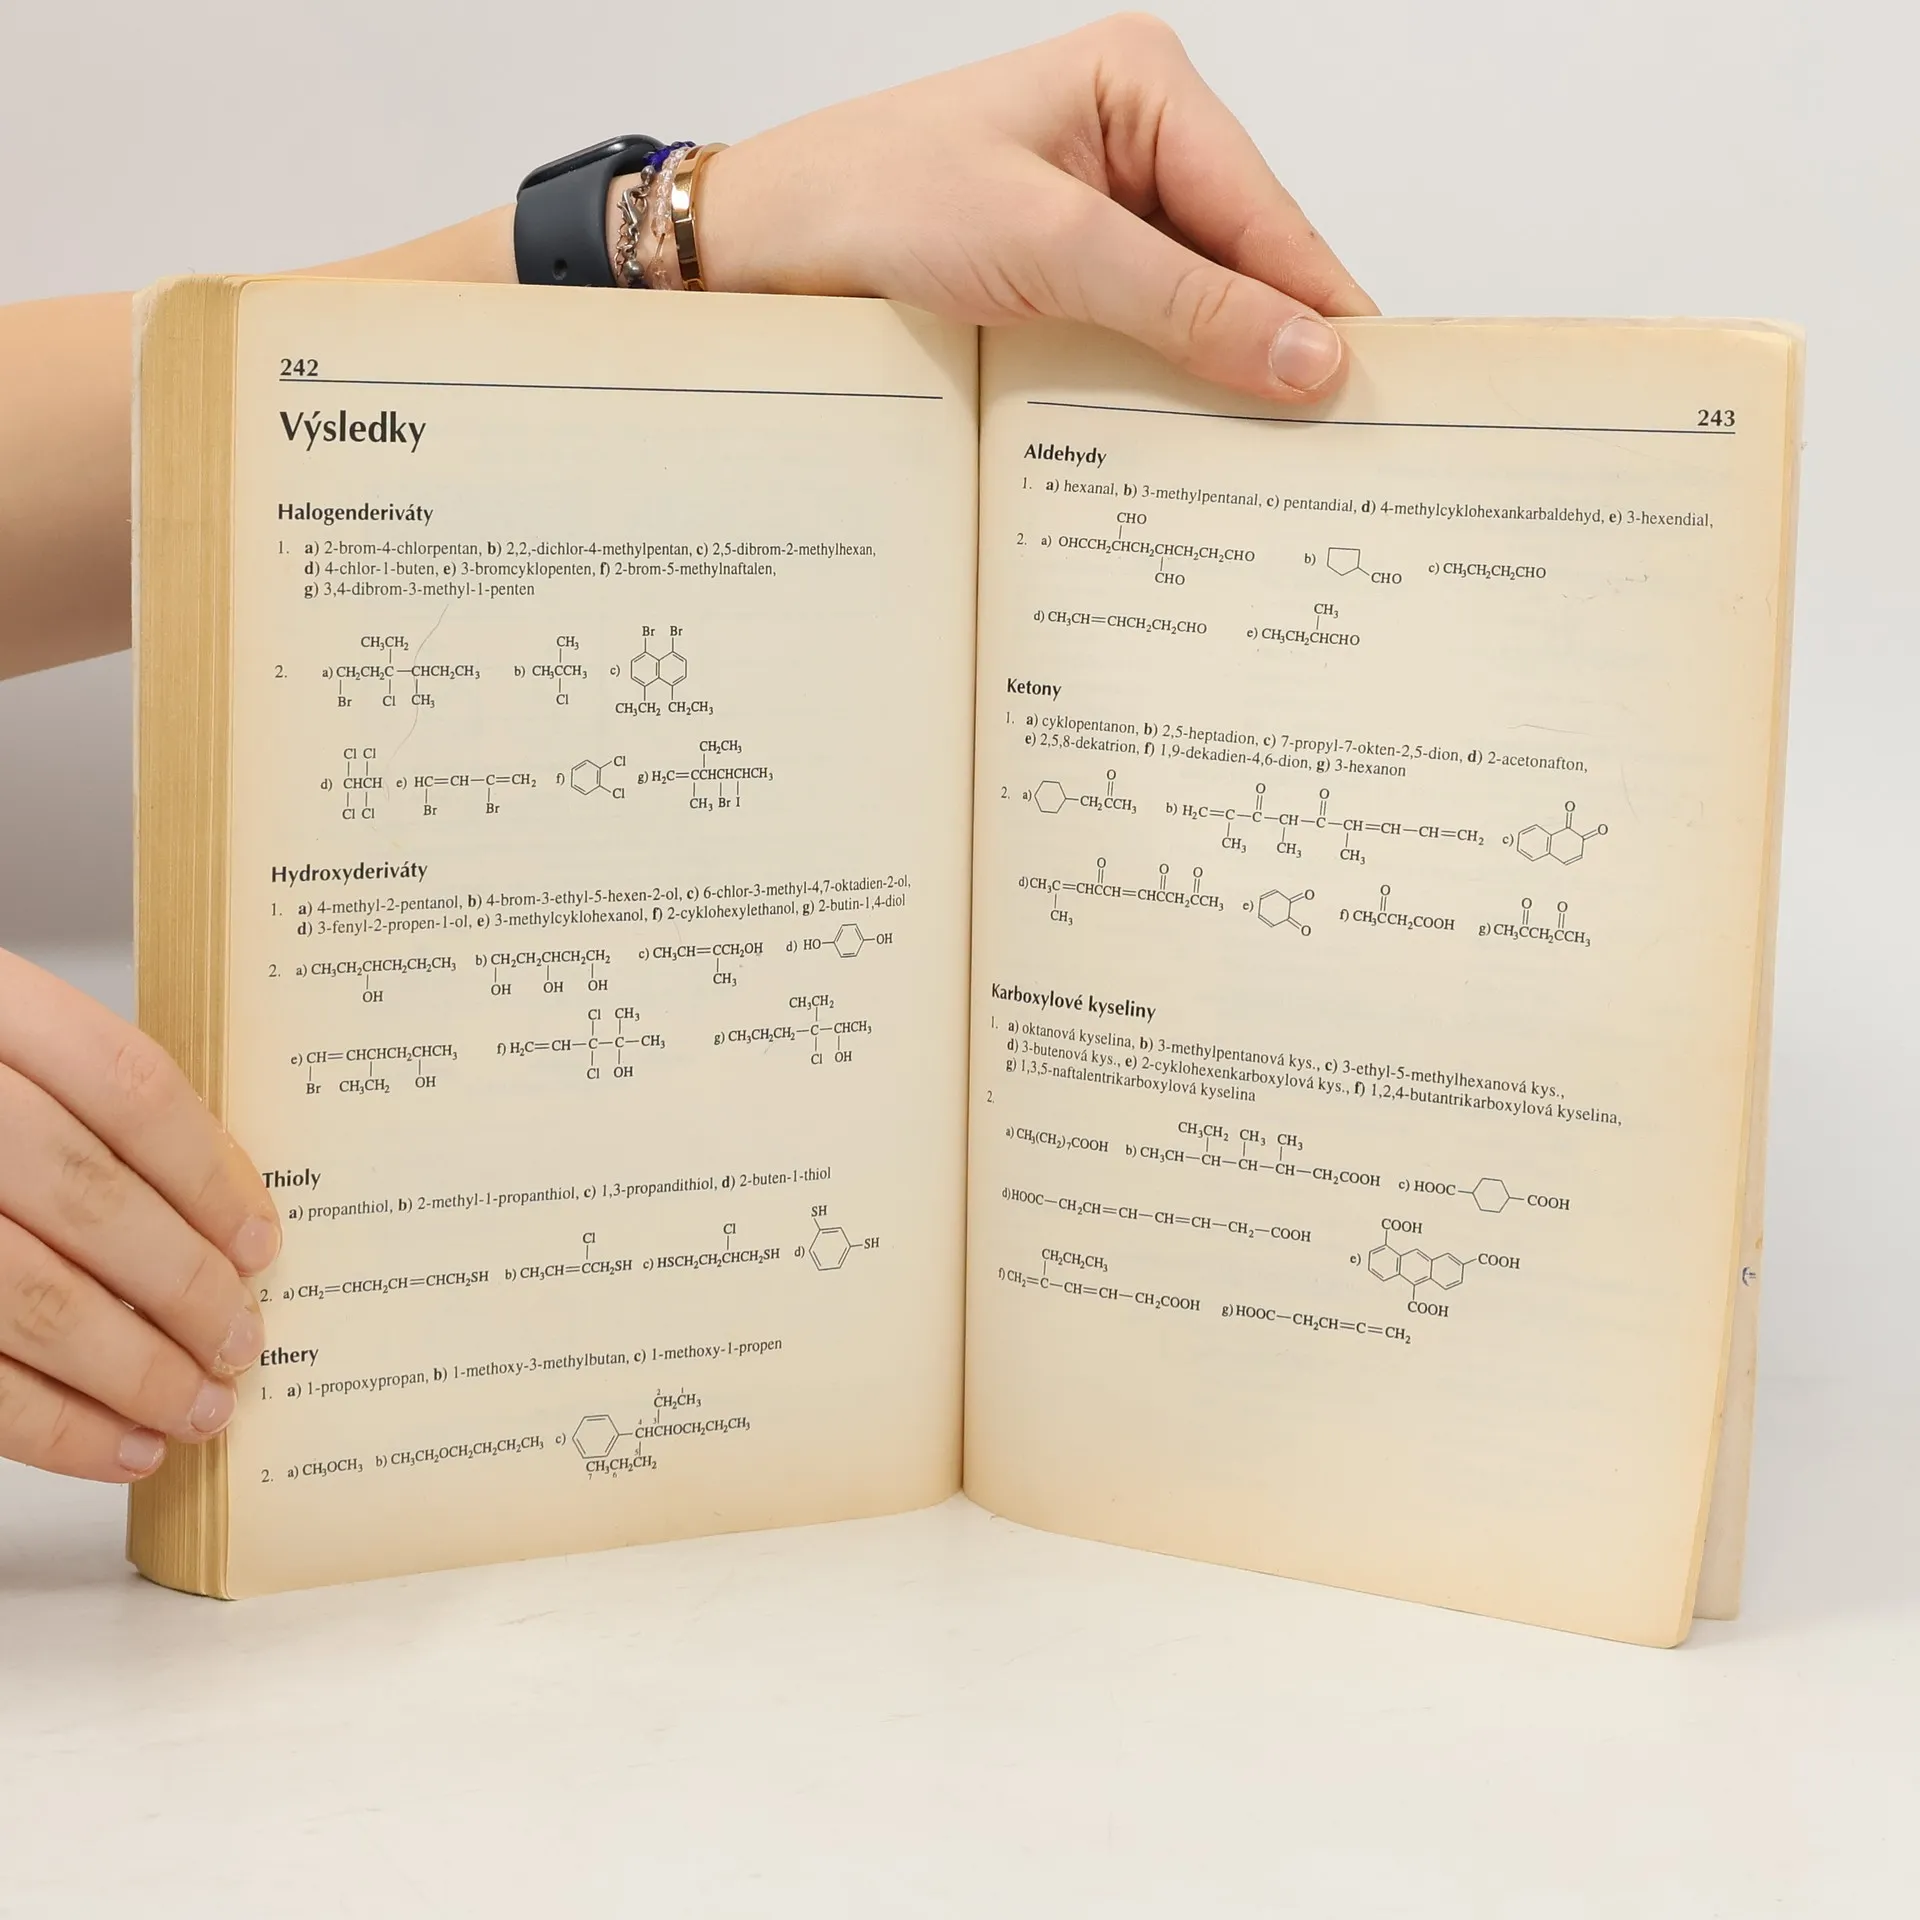 242
Výsledky
Halogenderiváty
1. a) 2-brom-4-chlorpentan, b) 2,2,-dichlor-4-methylpentan, c) 2,5-dibrom-2-methylhexan,
d) 4-chlor-1-buten, e) 3-bromcyklopenten, f) 2-brom-5-methylnaftalen,
g) 3,4-dibrom-3-methyl-1-penten
CH₃CH₂ CH₃ Br Br
2. a) CH₂CH₂C—CHCH₂CH₃ b) CH₃CCH₃ c)
Br Cl CH₃ Cl CH₃CH₂ CH₂CH₃
Cl Cl Cl CH₂CH₃
d) CHCH e) HC=CH—C=CH₂ f) g) H₂C=CCHCHCHCH₃
Cl Cl Br Br Cl CH₃ Br I
Hydroxyderiváty
1. a) 4-methyl-2-pentanol, b) 4-brom-3-ethyl-5-hexen-2-ol, c) 6-chlor-3-methyl-4,7-oktadien-2-ol,
d) 3-fenyl-2-propen-1-ol, e) 3-methylcyklohexanol, f) 2-cyklohexylethanol, g) 2-butin-1,4-diol
2. a) CH₃CH₂CHCH₂CH₂CH₃ b) CH₂CH₂CHCH₂CH₂ c) CH₃CH=CCH₂OH d) HO OH
OH OH OH OH CH₃
Cl CH₃ CH₃CH₂
e) CH=CHCHCH₂CHCH₃ f) H₂C=CH—C—C—CH₃ g) CH₃CH₂CH₂—C—CHCH₃
Br CH₃CH₂ OH Cl OH Cl OH
Thioly
a) propanthiol, b) 2-methyl-1-propanthiol, c) 1,3-propandithiol, d) 2-buten-1-thiol
Cl Cl SH
2. a) CH₂=CHCH₂CH=CHCH₂SH b) CH₃CH=CCH₂SH c) HSCH₂CH₂CHCH₂SH d) SH
Ethery
1. a) 1-propoxypropan, b) 1-methoxy-3-methylbutan, c) 1-methoxy-1-propen
2 1
CH₂CH₃
4 3
CHCHOCH₂CH₂CH₃
2. a) CH₃OCH₃ b) CH₃CH₂OCH₂CH₂CH₂CH₃ c)
5
CH₃CH₂CH₂
7 6
243
Aldehydy
1. a) hexanal, b) 3-methylpentanal, c) pentandial, d) 4-methylcyklohexankarbaldehyd, e) 3-hexendial,
CHO
2. a) OHCCH₂CHCH₂CHCH₂CH₂CHO b) CHO c) CH₃CH₂CH₂CHO
CHO
CH₃
d) CH₃CH=CHCH₂CH₂CHO e) CH₃CH₂CHCHO
Ketony
1. a) cyklopentanon, b) 2,5-heptadion, c) 7-propyl-7-okten-2,5-dion, d) 2-acetonafton,
e) 2,5,8-dekatrion, f) 1,9-dekadien-4,6-dion, g) 3-hexanon
O O O O
2. a) CH₂CCH₃ b) H₂C=C—C—CH—C—CH=CH—CH=CH₂ c) O
CH₃ CH₃ CH₃
O O O O O O O
d) CH₃C=CHCCH=CHCCH₂CCH₃ e) f) CH₃CCH₂COOH g) CH₃CCH₂CCH₃
CH₃ O
Karboxylové kyseliny
1. a) oktanová kyselina, b) 3-methylpentanová kys., c) 3-ethyl-5-methylhexanová kys.,
d) 3-butenová kys., e) 2-cyklohexenkarboxylová kys., f) 1,2,4-butantrikarboxylová kyselina,
g) 1,3,5-naftalentrikarboxylová kyselina
2.
CH₃CH₂ CH₃ CH₃
a) CH₃(CH₂)₇COOH b) CH₃CH—CH—CH—CH—CH₂COOH c) HOOC COOH
d) HOOC—CH₂CH=CH—CH=CH—CH₂—COOH e) COOH COOH COOH
CH₂CH₂CH₃
f) CH₂=C—CH=CH—CH₂COOH g) HOOC—CH₂CH=C=CH₂